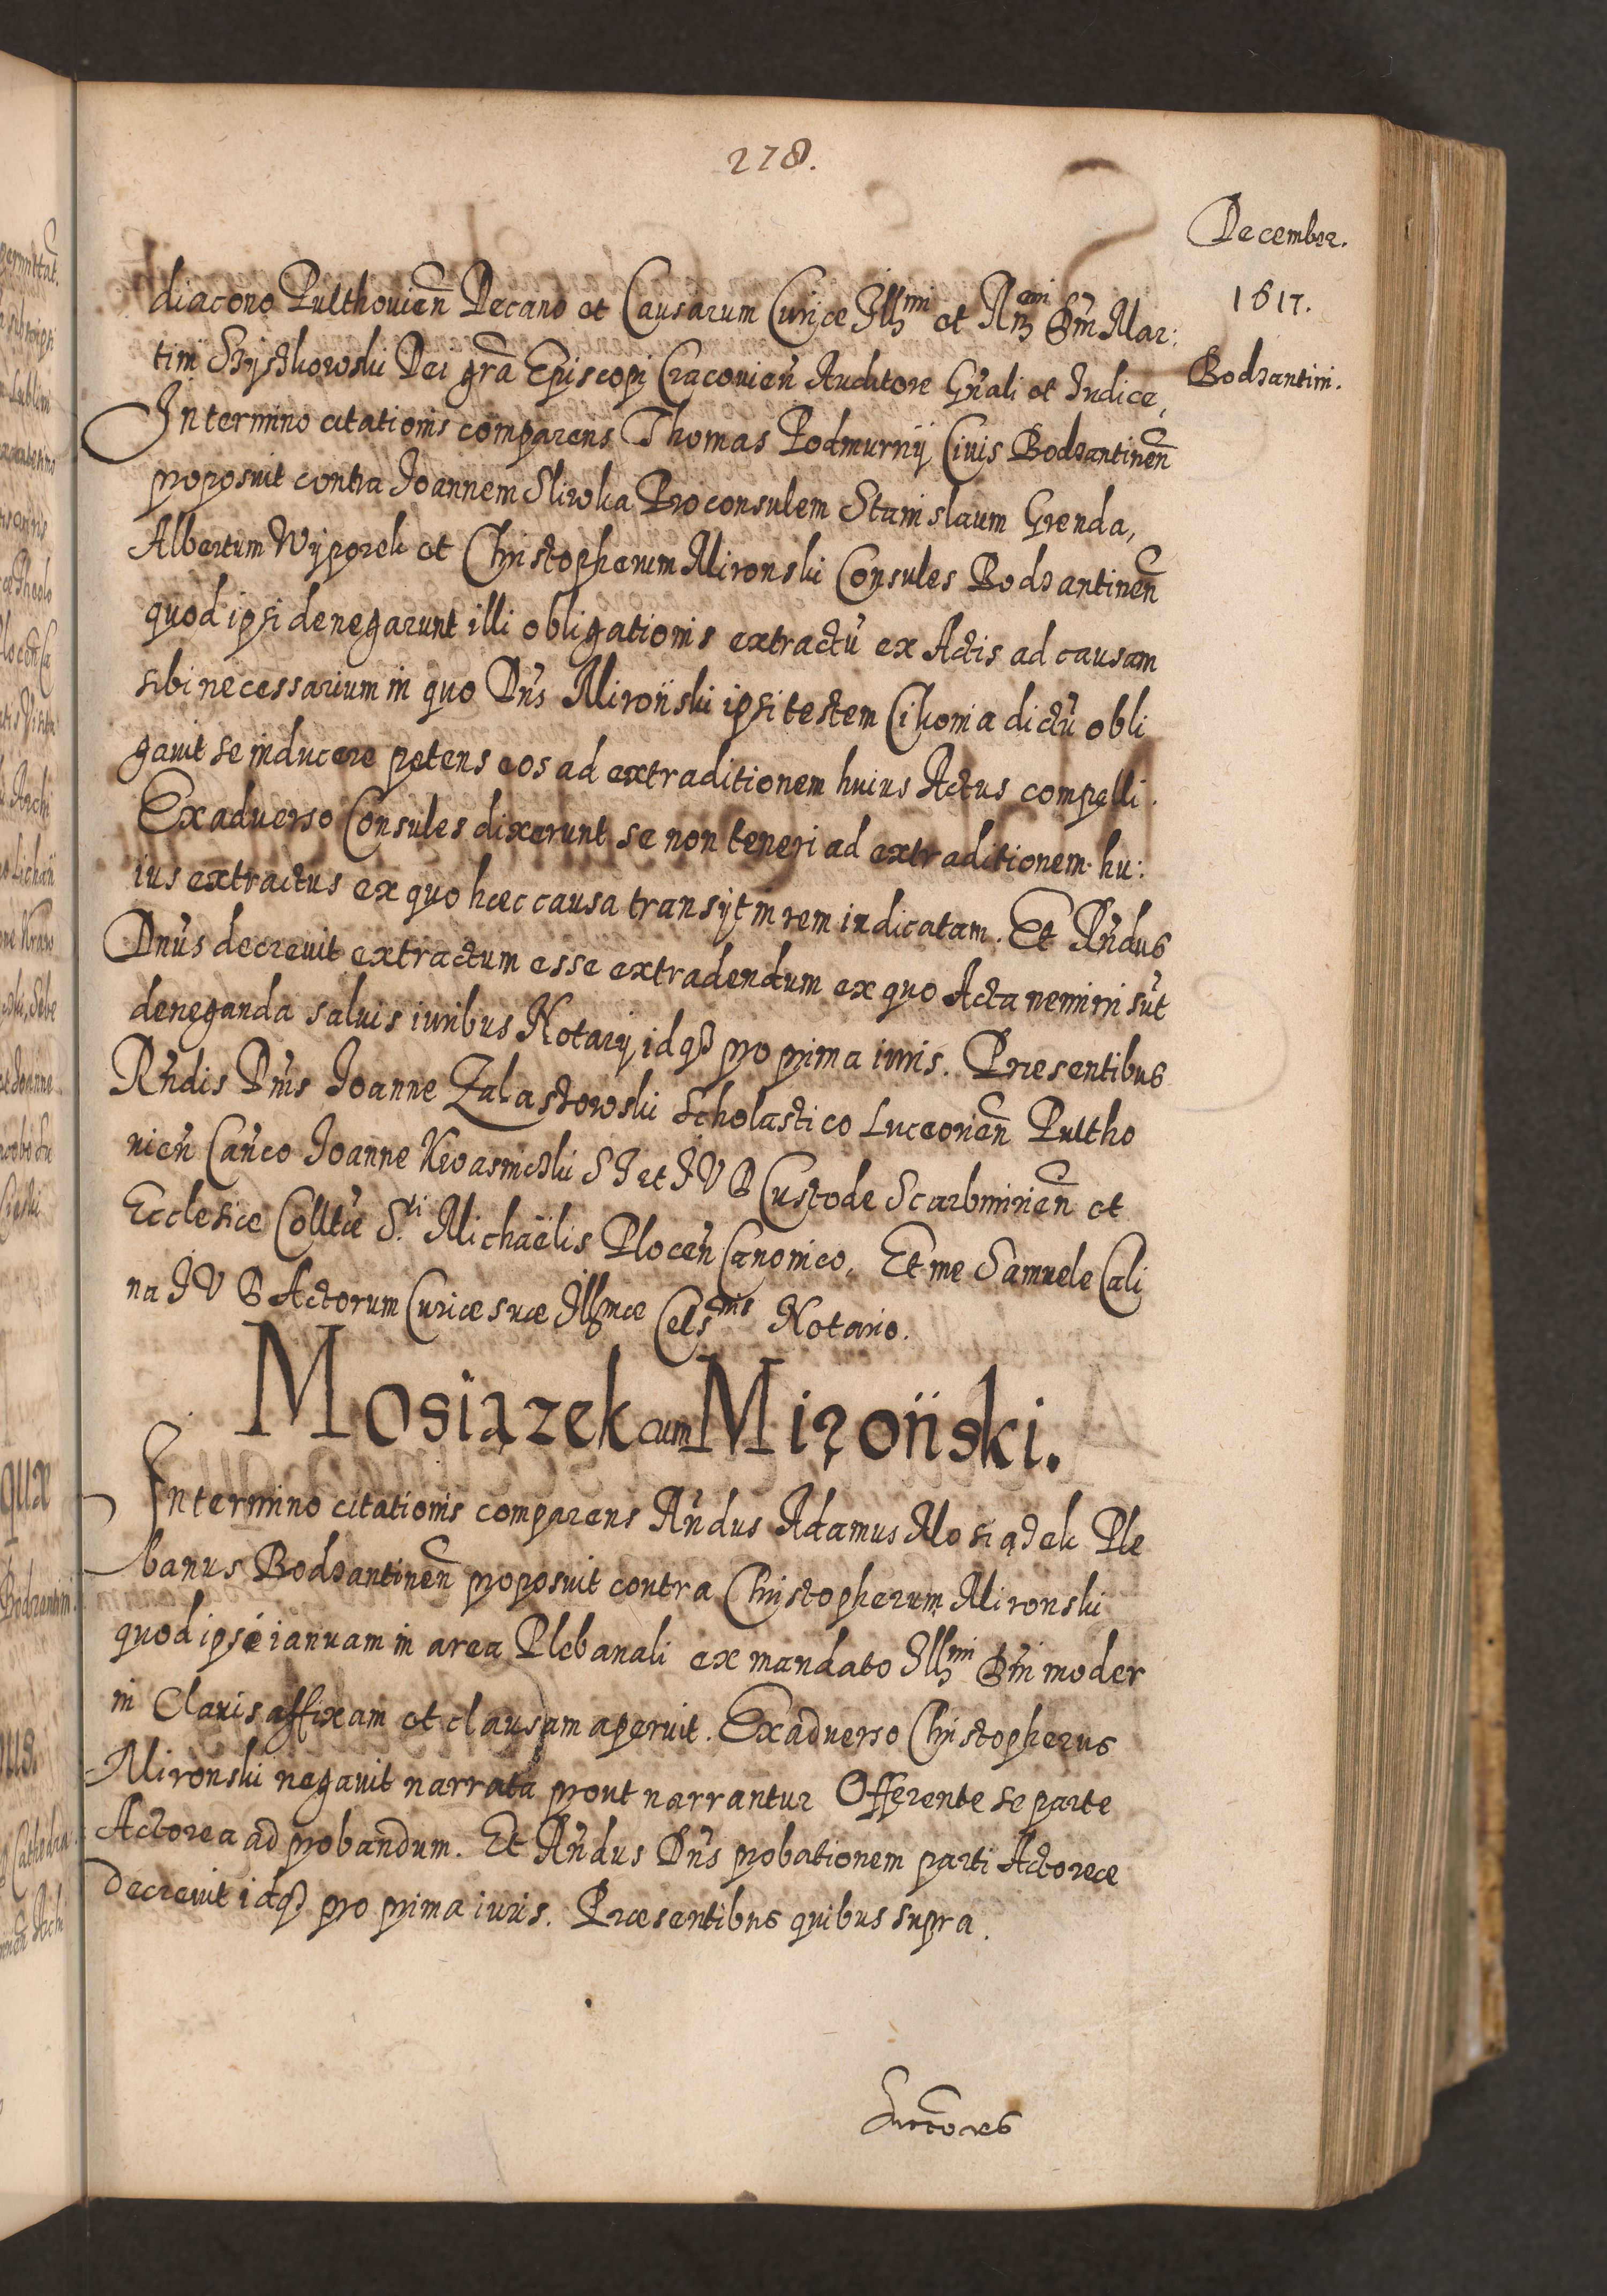 278.
December.
1617.
Bodzantini.
diacono Pulthovien̄ Decano et Causarum Curiæ Illmi et Rmi Dn̄i Mar:
tini Szyszkowski Dei grā Episcopi Cracovien̄ Auditore Gn̄ali et Iudice,
In termino citationis comparens Thomas Podmurnÿ Civis Bodzantinen̄
proposuit contra Joannem Sliwka Proconsulem Stanislaum Grenda,
Albertum Wyporek et Christopherum Mironski Consules Bodzantinen̄
quod ipsi denegarunt illi obligationis extractū ex Actis ad causam
sibi necessarium in quo Dn̄s Miroński ipsi testem Cikonia dictū obli
gavit se inducere petens eos ad extraditionem huius Actus compelli.
Ex adverso Consules dixerunt se non teneri ad extraditionem hu:
ius extractus ex quo hæc causa transÿt in rem iudicatam. Et Rn̄dus
Dn̄us decrevit extractum esse extradendum ex quo Acta nemini sūt
deneganda salvis iuribus Notarÿ idqȝ pro prima iuris. Præsentibus
Rn̄dis Dn̄is Joanne Zalastowski Scholastico Luceorien̄ Pultho
vien̄ Can̄co Joanne Kwasnicki S I et I V D Custode Scarbimirien̄ et
Ecclesiæ Colltæ S.ti Michaëlis Plocen̄ Canonico. Et me Samuele Cali
na I V D Actorum Curiæ suæ Illmæ Celsnis Notario.
Mosiązek cum Miroński.
In termino citationis comparens Rn̄dus Adamus Mosiązek Ple
banus Bodzantinen̄ proposuit contra Christopherum Mironski
quod ipse ianuam in area Plebanali ex mandato Illmi Dn̄i moder
ni Clavis affixam et clausam aperuit. Ex adverso Christopherus
Mironski negavit narrata prout narrantur Offerente se parte
Actorea ad probandum. Et Rn̄dus Dn̄s probationem parti Actoreæ
decrevit idqȝ pro prima iuris. Præsentibus quibus supra.